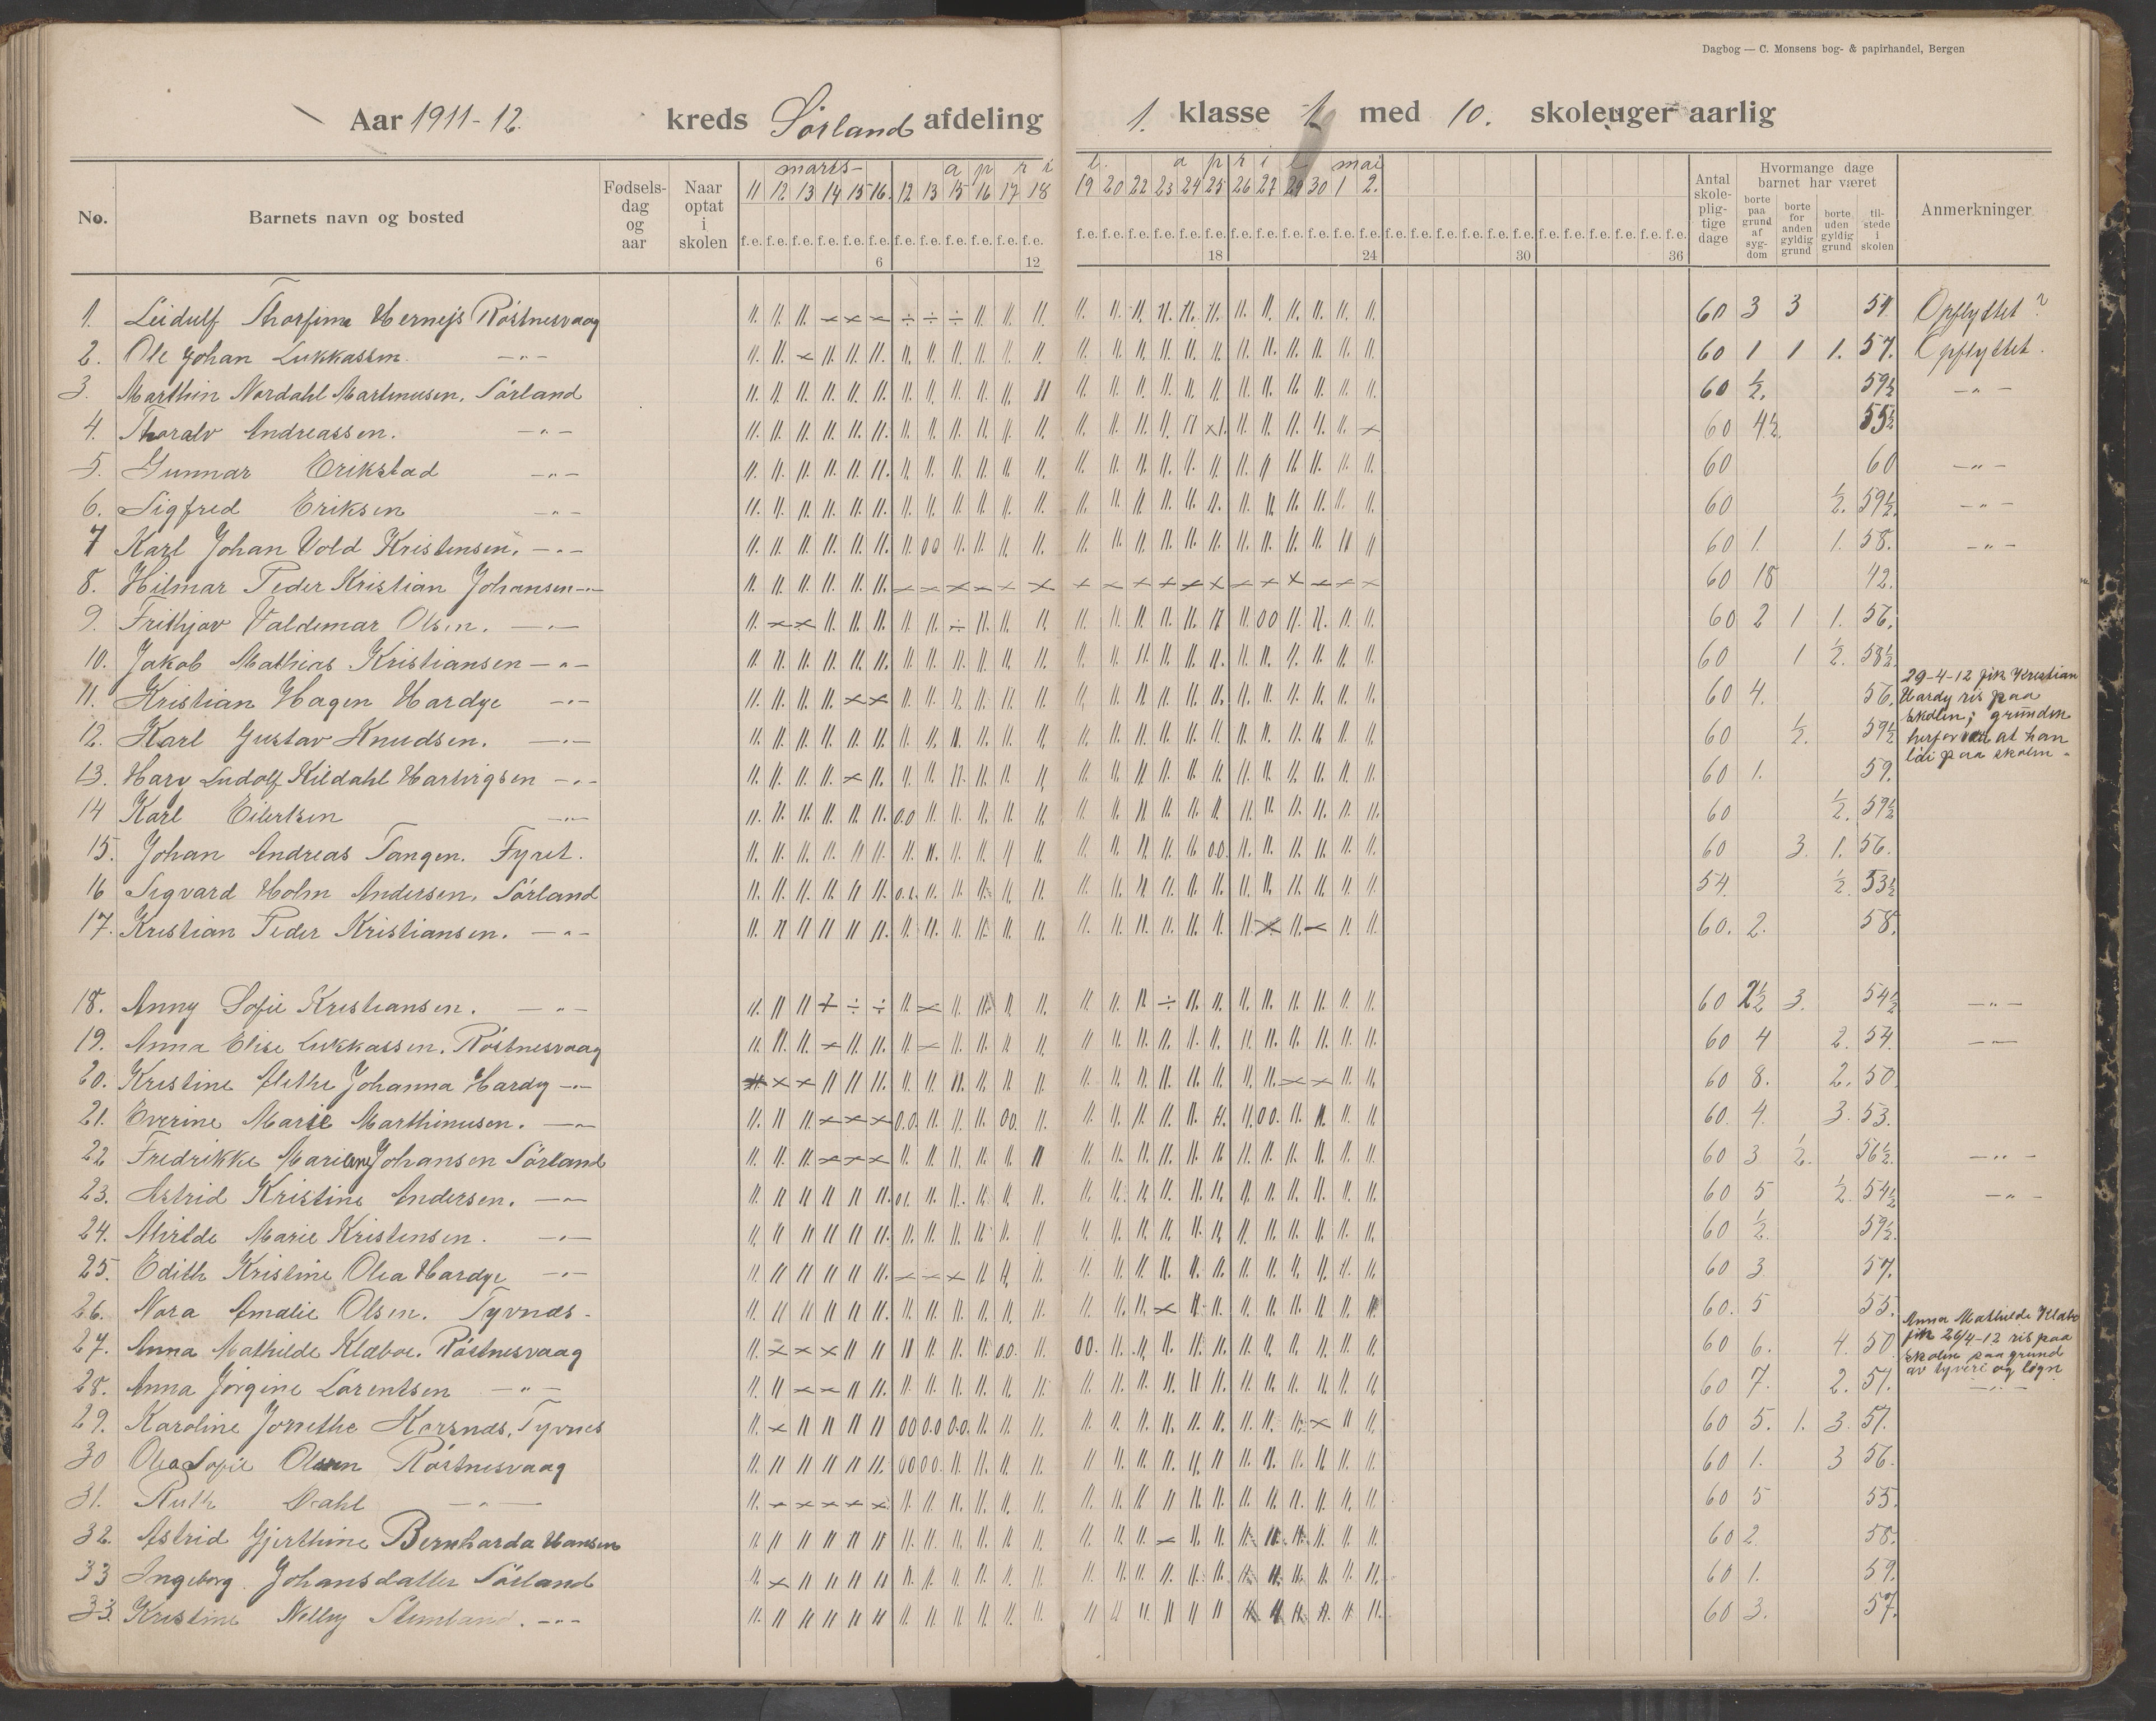 Dagbog — C. Monsens bog- & papirhandel, Bergen
Aar 1911-12. kreds Sörland afdeling 1. klasse 1 med 10. skoleuger aarlig
No. Barnets navn og bosted Fødsels-dag og aar Naar optat i skolen
marts april
11 12 13 14 15 16. 12 13 15 16 17 18
f.e. f.e. f.e. f.e. f.e. f.e. f.e. f.e. f.e. f.e. f.e. f.e.
6 12
april mai
19 20 22 23 24 25 26 27 29 30 1 2.
18 24 30 36
Antal skole-plig-tige dage
Hvormange dage barnet har været
borte paa grund af syg-dom
borte for anden gyldig grund
borte uden gyldig grund
til-stede i skolen
Anmerkninger
1. Leidulf Thorfinn Hernejs Röstnesvaag 60 3 3 54 Opflyttet?
2. Ole Johan Lukkassen. -"- 60 1 1 1. 57. Opflyttet.
3. Marthin Nordahl Martinusen, Sörland 60 ½. 59½ -"-
4. Thoralv Andreassen. -"- 60 4½. 55½
5. Gunnar Erikstad -"- 60 60 -"-
6. Sigfred Eriksen -"- 60 ½. 59½. -"-
7 Karl Johan Vold Kristensen. -"- 60 1. 1. 58. -"-
8. Hilmar Peder Kristian Johansen -"- 60 18 42.
9. Frithjov Valdemar Olsen. -"- 60 2 1 1. 56.
10. Jakob Mathias Kristiansen -"- 60 1 ½. 58½
11. Kristian Hagen Hardye -"- 60 4. 56.
29-4-12 fik Kristian
Hardy ris paa
skolen; grunden
herfor at han
löi paa skolen.
12. Karl Gustav Knudsen. -"- 60 ½. 59½
13. Hary Ludolf Kildahl Hartvigsen -"- 60 1. 59.
14 Karl Eilertsen -"- 60 ½. 59½
15. Johan Andreas Tangen. Fyret. 60 3. 1. 56.
16 Sigvard Holm Andersen, Sörland 54. ½. 53½
17. Kristian Peder Kristiansen. -"- 60. 2. 58.
18. Anny Sofie Kristiansen. -"- 60 2½ 3. 54½ -"-
19. Anna Elise Lukkassen. Röstnesvaag 60 4 2. 54. -"-
20. Kristine Alethe Johanna Hardy -"- 60 8. 2. 50
21. Everine Marie Marthinusen. -"- 60. 4. 3. 53.
22 Fredrikke Mariane Johansen Sörland 60 3 ½. 56½. -"-
23. Astrid Kristine Andersen. -"- 60 5 ½. 54½ -"-
24. Alvilde Marie Kristensen. -"- 60 ½. 59½.
25. Edith Kristine Olea Hardye -"- 60 3 57.
26. Nora Amalie Olsen. Tyvnæs. 60. 5 55.
27. Anna Mathilde Klæboe. Röstnesvaag 60 6. 4. 50
Anna Mathilde Klæbo
fik 26/4-12 ris paa
skolen paa grund
av tyveri og løgn
28. Anna Jörgine Lorentsen -"- 60 7. 2. 51. -"-
29. Karoline Jonethe Korsnæs, Tyvnes 60 5. 1. 3. 51.
30 Olea Sofie Olsen Röstnesvaag 60 1. 3 56.
31. Ruth Dahl -"- 60 5 55.
32. Astrid Gjerthine Bernharda Hansen 60 2. 58.
33 Ingeborg Johansdatter Sörland 60 1. 59.
33. Kristine Nelly Stemland. -"- 60 3. 57.